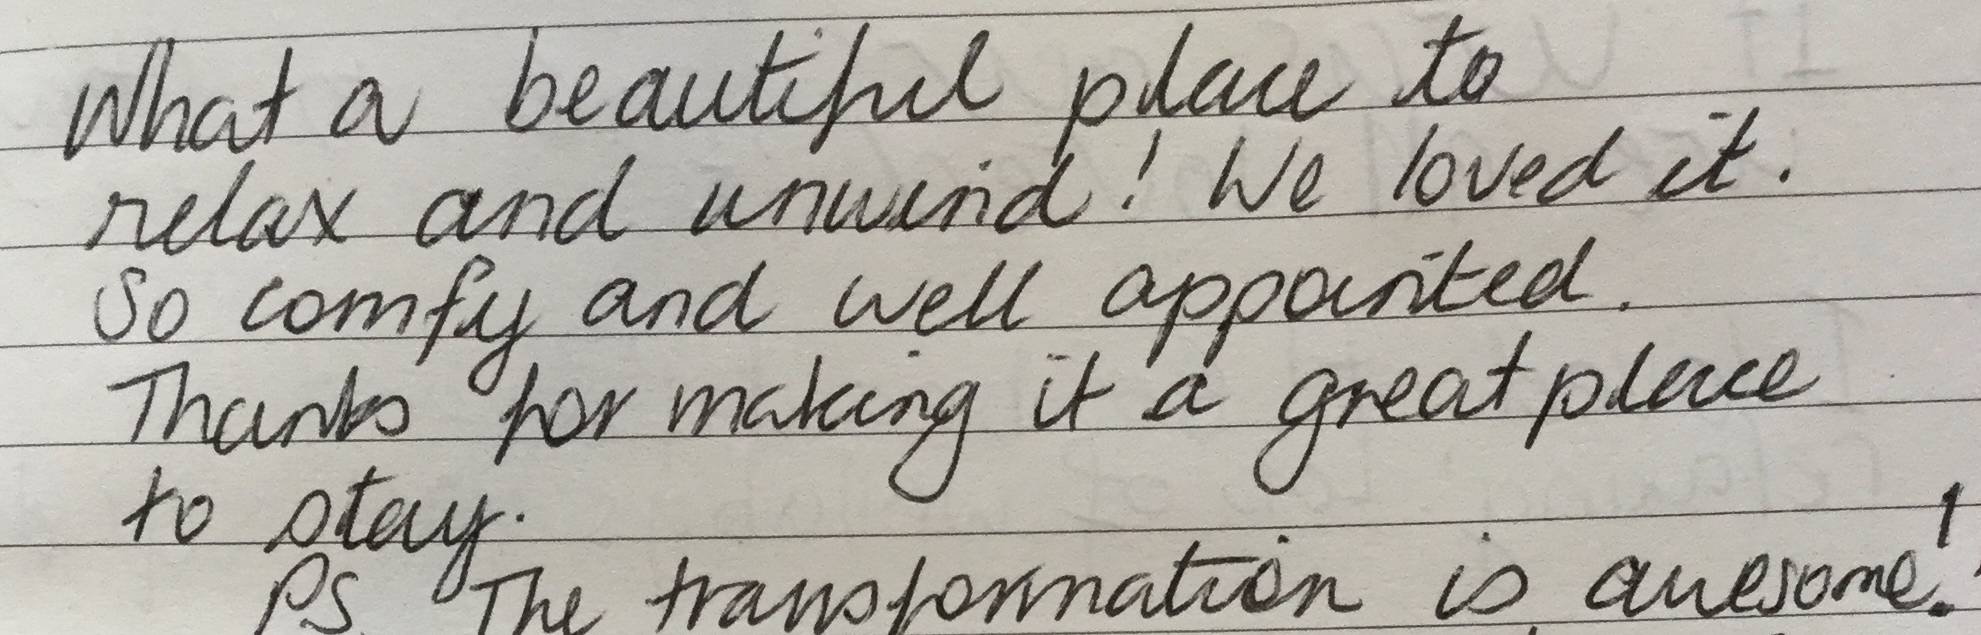 What a beautiful place to
relax and unwind! We loved it.
So comfy and well appointed.
Thanks for making it a great place
to stay.
PS. The transformation is awesome!